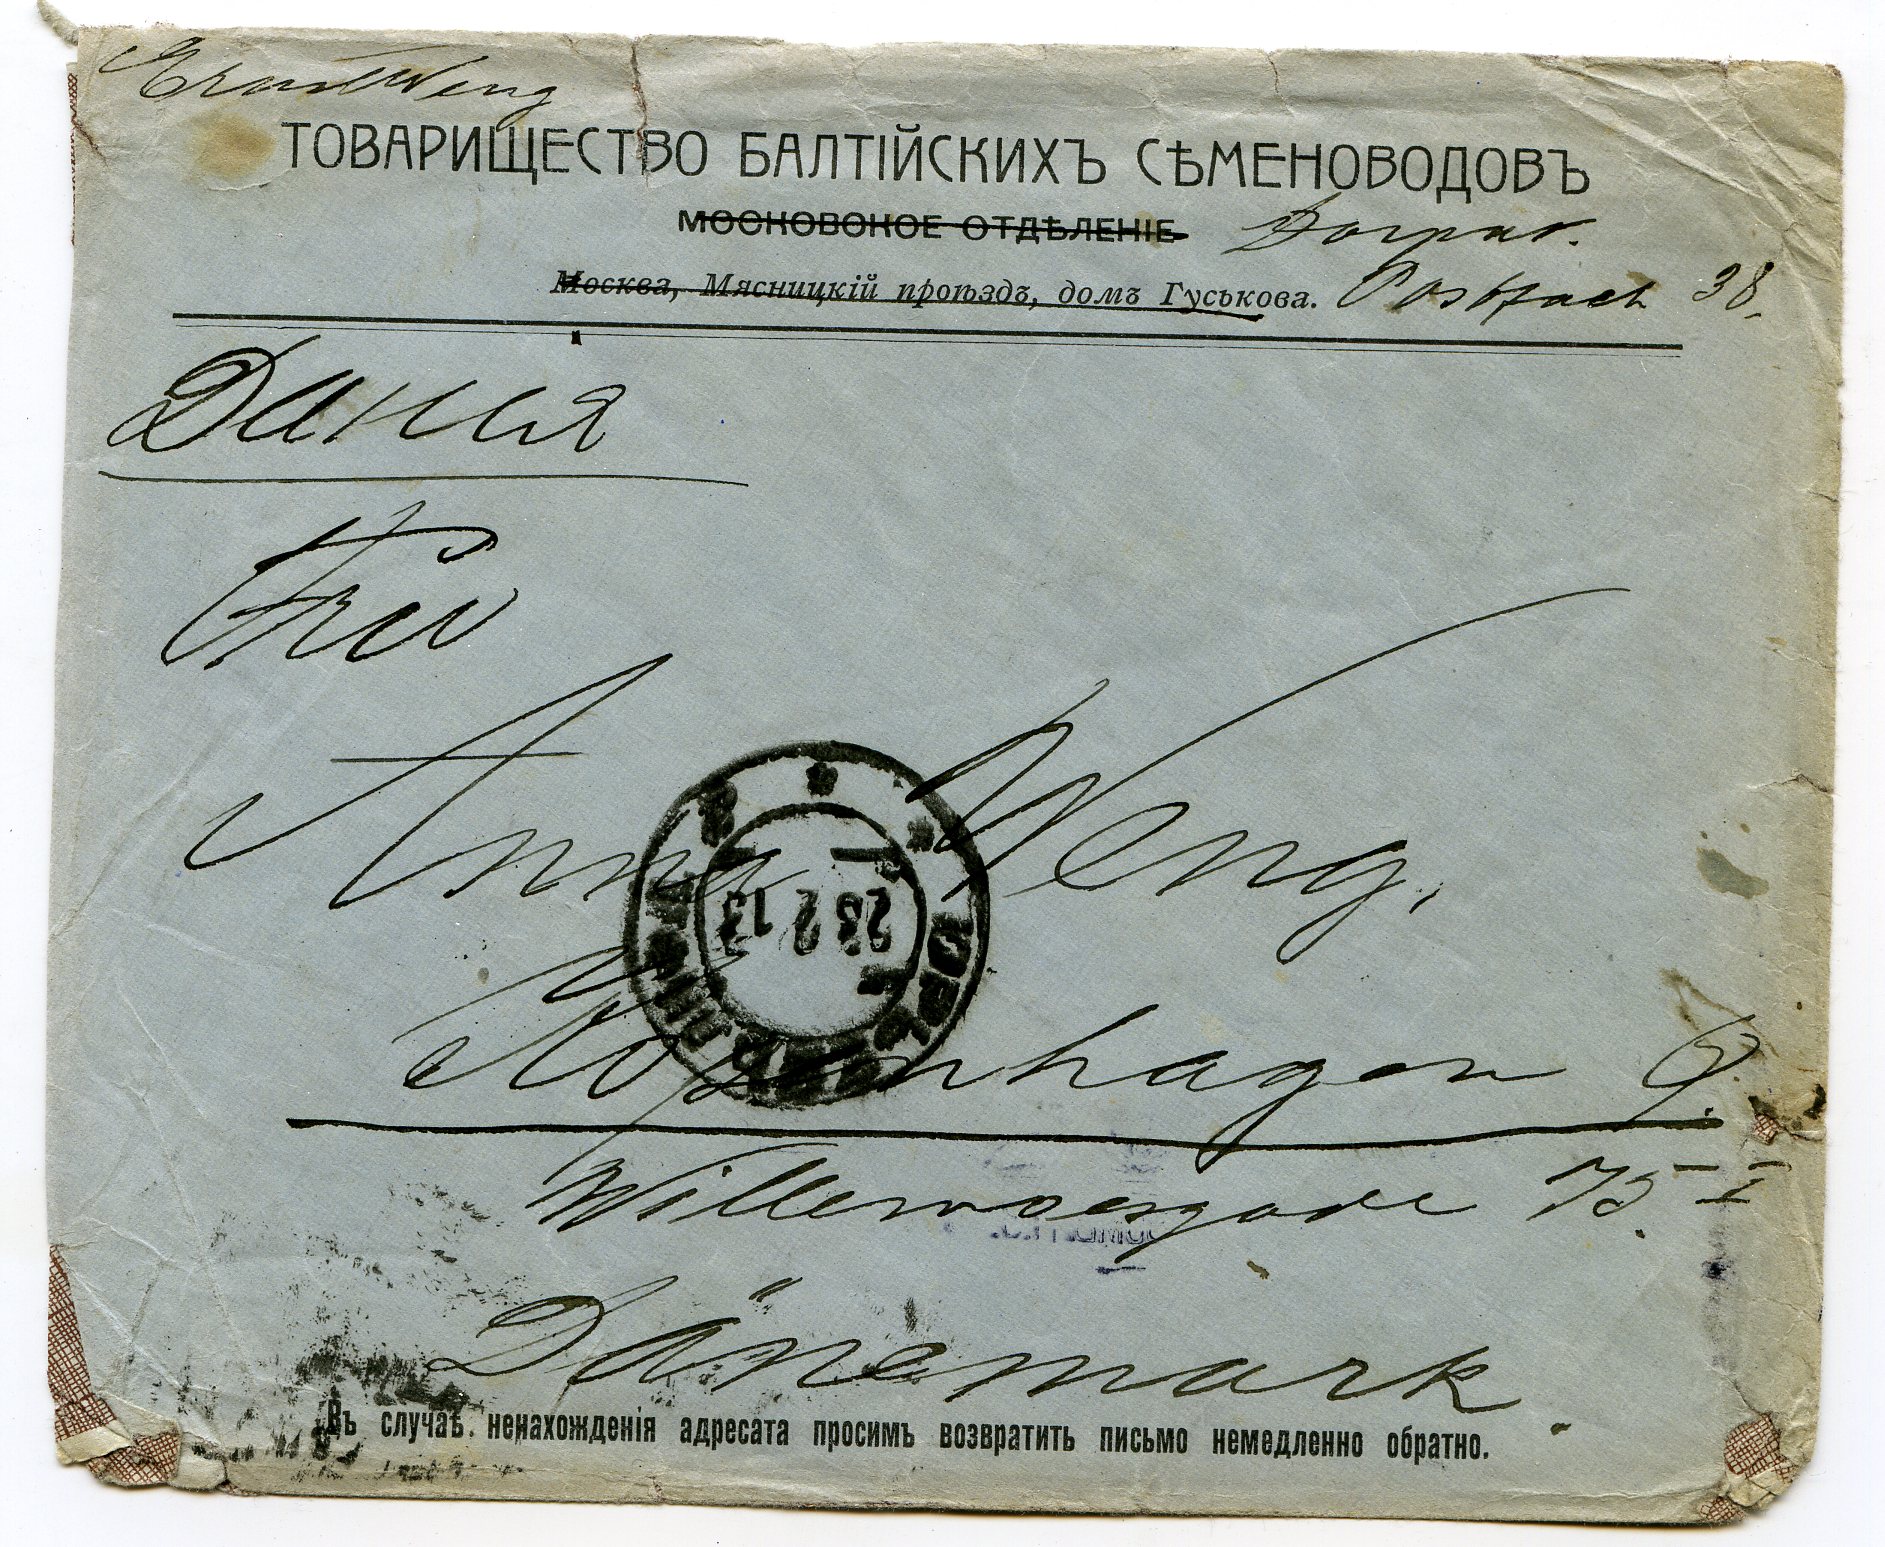 Weng
ТОВАРИЩЕСТВО БАЛТІЙСКИХЪ СѢМЕНОВОДОВЪ
МОСКОВСКОЕ ОТДѢЛЕНІЕ Dorpat.
Москва, Мясницкій проѣздъ, домъ Гуськова. Postfach 38.
Данія
Frw
Anna Weng.
Kopenhagen Ø.
Willemoesgade 75 I
Dänemark.
Въ случаѣ ненахожденія адресата просимъ возвратить письмо немедленно обратно.
ЮРЬЕВЪ ЛИФЛЯНД.
28 2 13